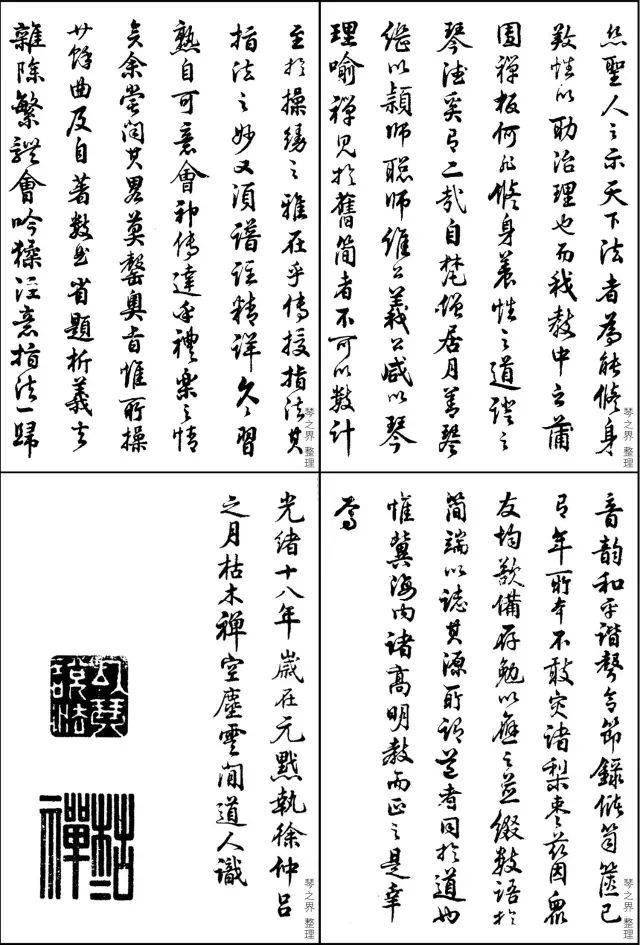 然聖人之示天下法者為能脩身
性以助治理也而我教中之蒲
團禪板何非脩身養性之道證之
琴德奚有二哉自梵僧居月善琴
繼以穎師聰師維公義公咸以琴
理喻禪見於舊簡者不可以數計
琴之界 整理
至於操縵之雅在乎傳授指法其
指法之妙又須譜註精詳久久習
熟自可意會神傳達乎禮樂之情
矣余嘗閱其畧莫罄奧旨惟所操
廿餘曲及自著數曲省題析義去
離除繁體會吟猱注意指法一歸
琴之界 整理
音韻和平諧聲合節錄儲笥篋已
有年所本不敢災諸梨棗茲因眾
友均歎備存勉以應之並綴數語於
簡端以誌其源所謂者同於道也
惟冀海內諸高明教而正之是幸
焉
琴之界 整理
光緒十八年歲在元黓執徐仲呂
之月枯木禪空塵雲閒道人識
以琴說法
枯木禪
琴之界 整理